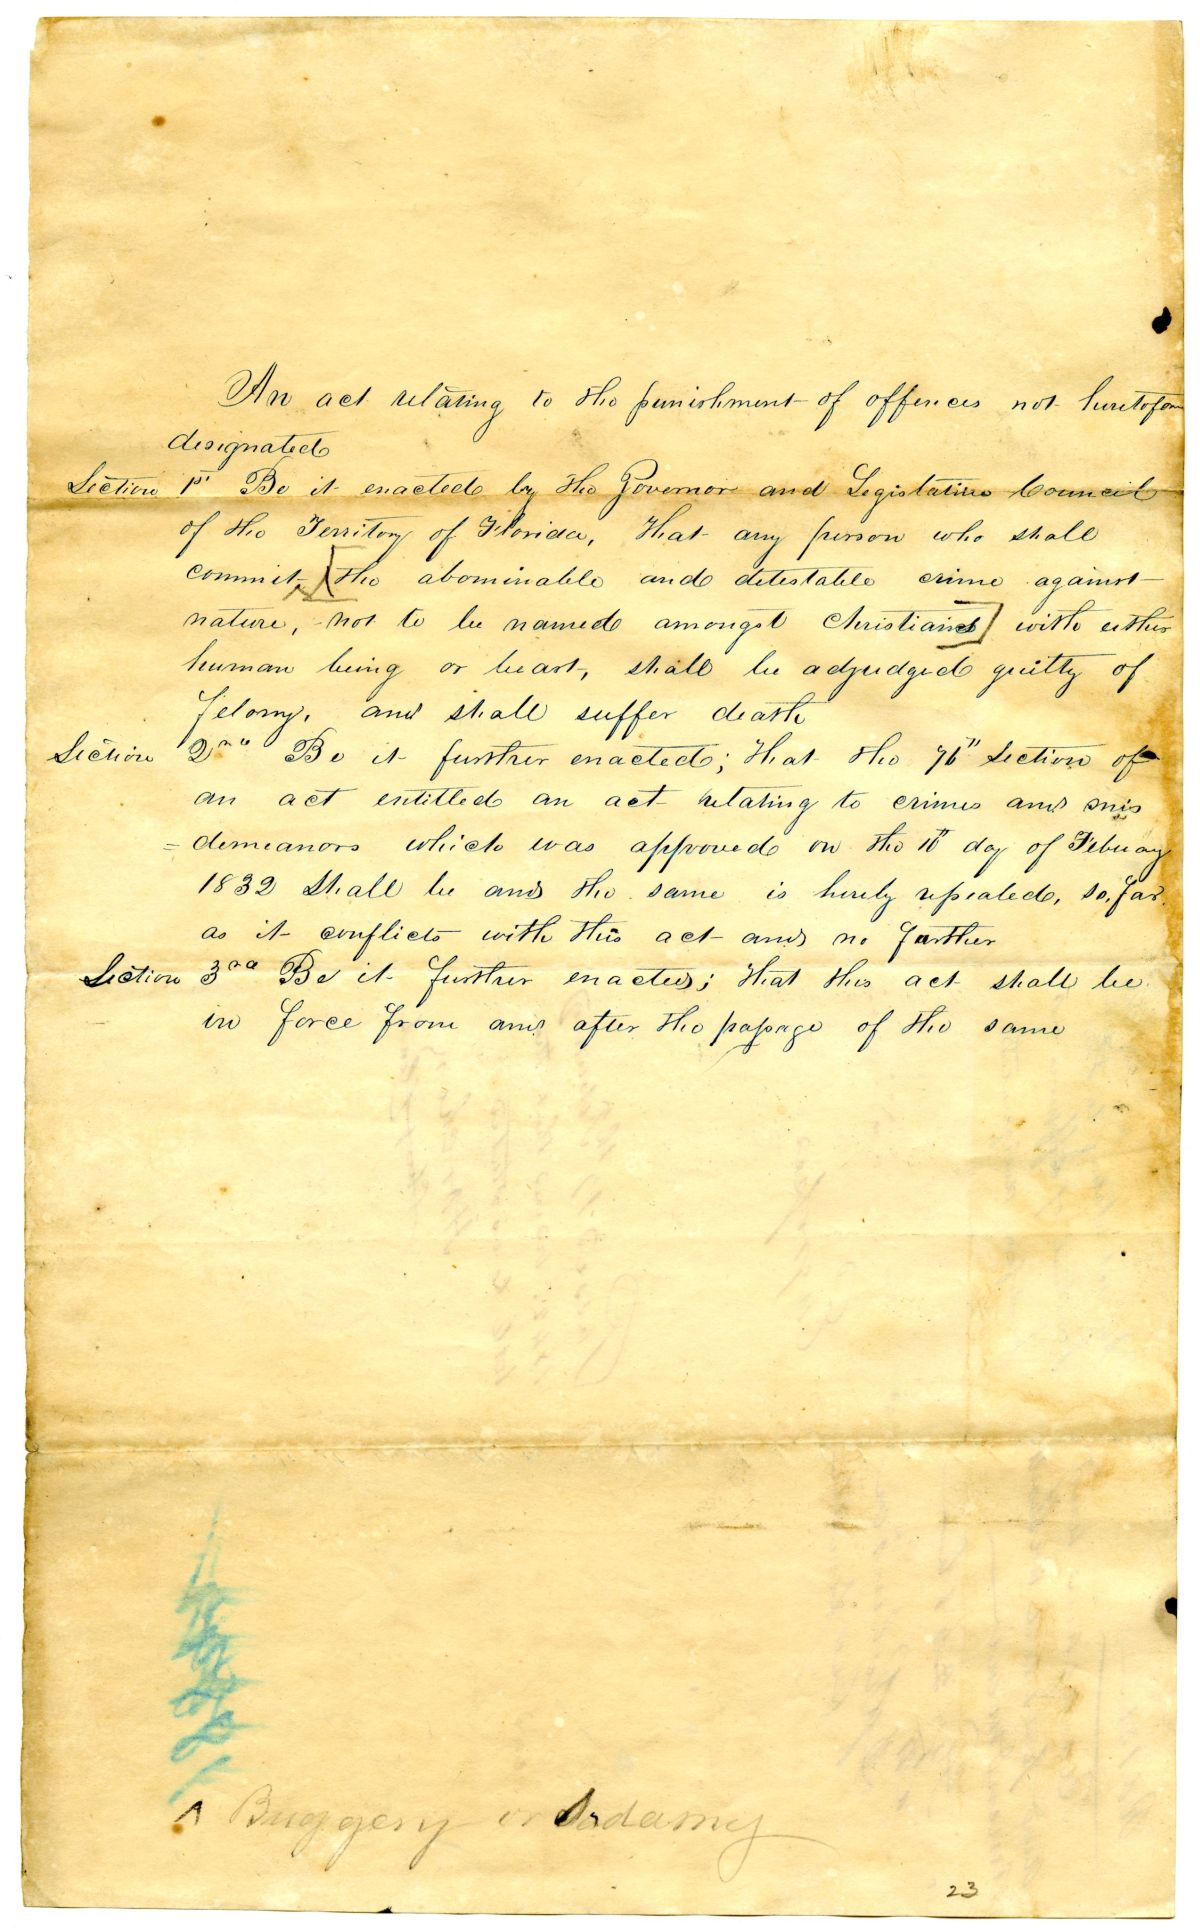 An act relating to the punishment of offences not heretofore
designated
Section 1st Be it enacted by the Governor and Legislative Council
of the Territory of Florida, That any person who shall
commit ^ [the abominable and detestable crime against
nature, not to be named amongst Christians] with either
human being or beast, shall be adjudged guilty of
felony, and shall suffer death
Section 2nd Be it further enacted; That the 76th Section of
an act entitled an act relating to crimes and mis
=demeanors which was approved on the 10th day of Febuary
1832 Shall be and the same is hereby repealed, so far
as it conflicts with this act and no further
Section 3rd Be it further enacted; That this act shall be
in force from and after the passage of the same
^ Buggery or Sodamy
23